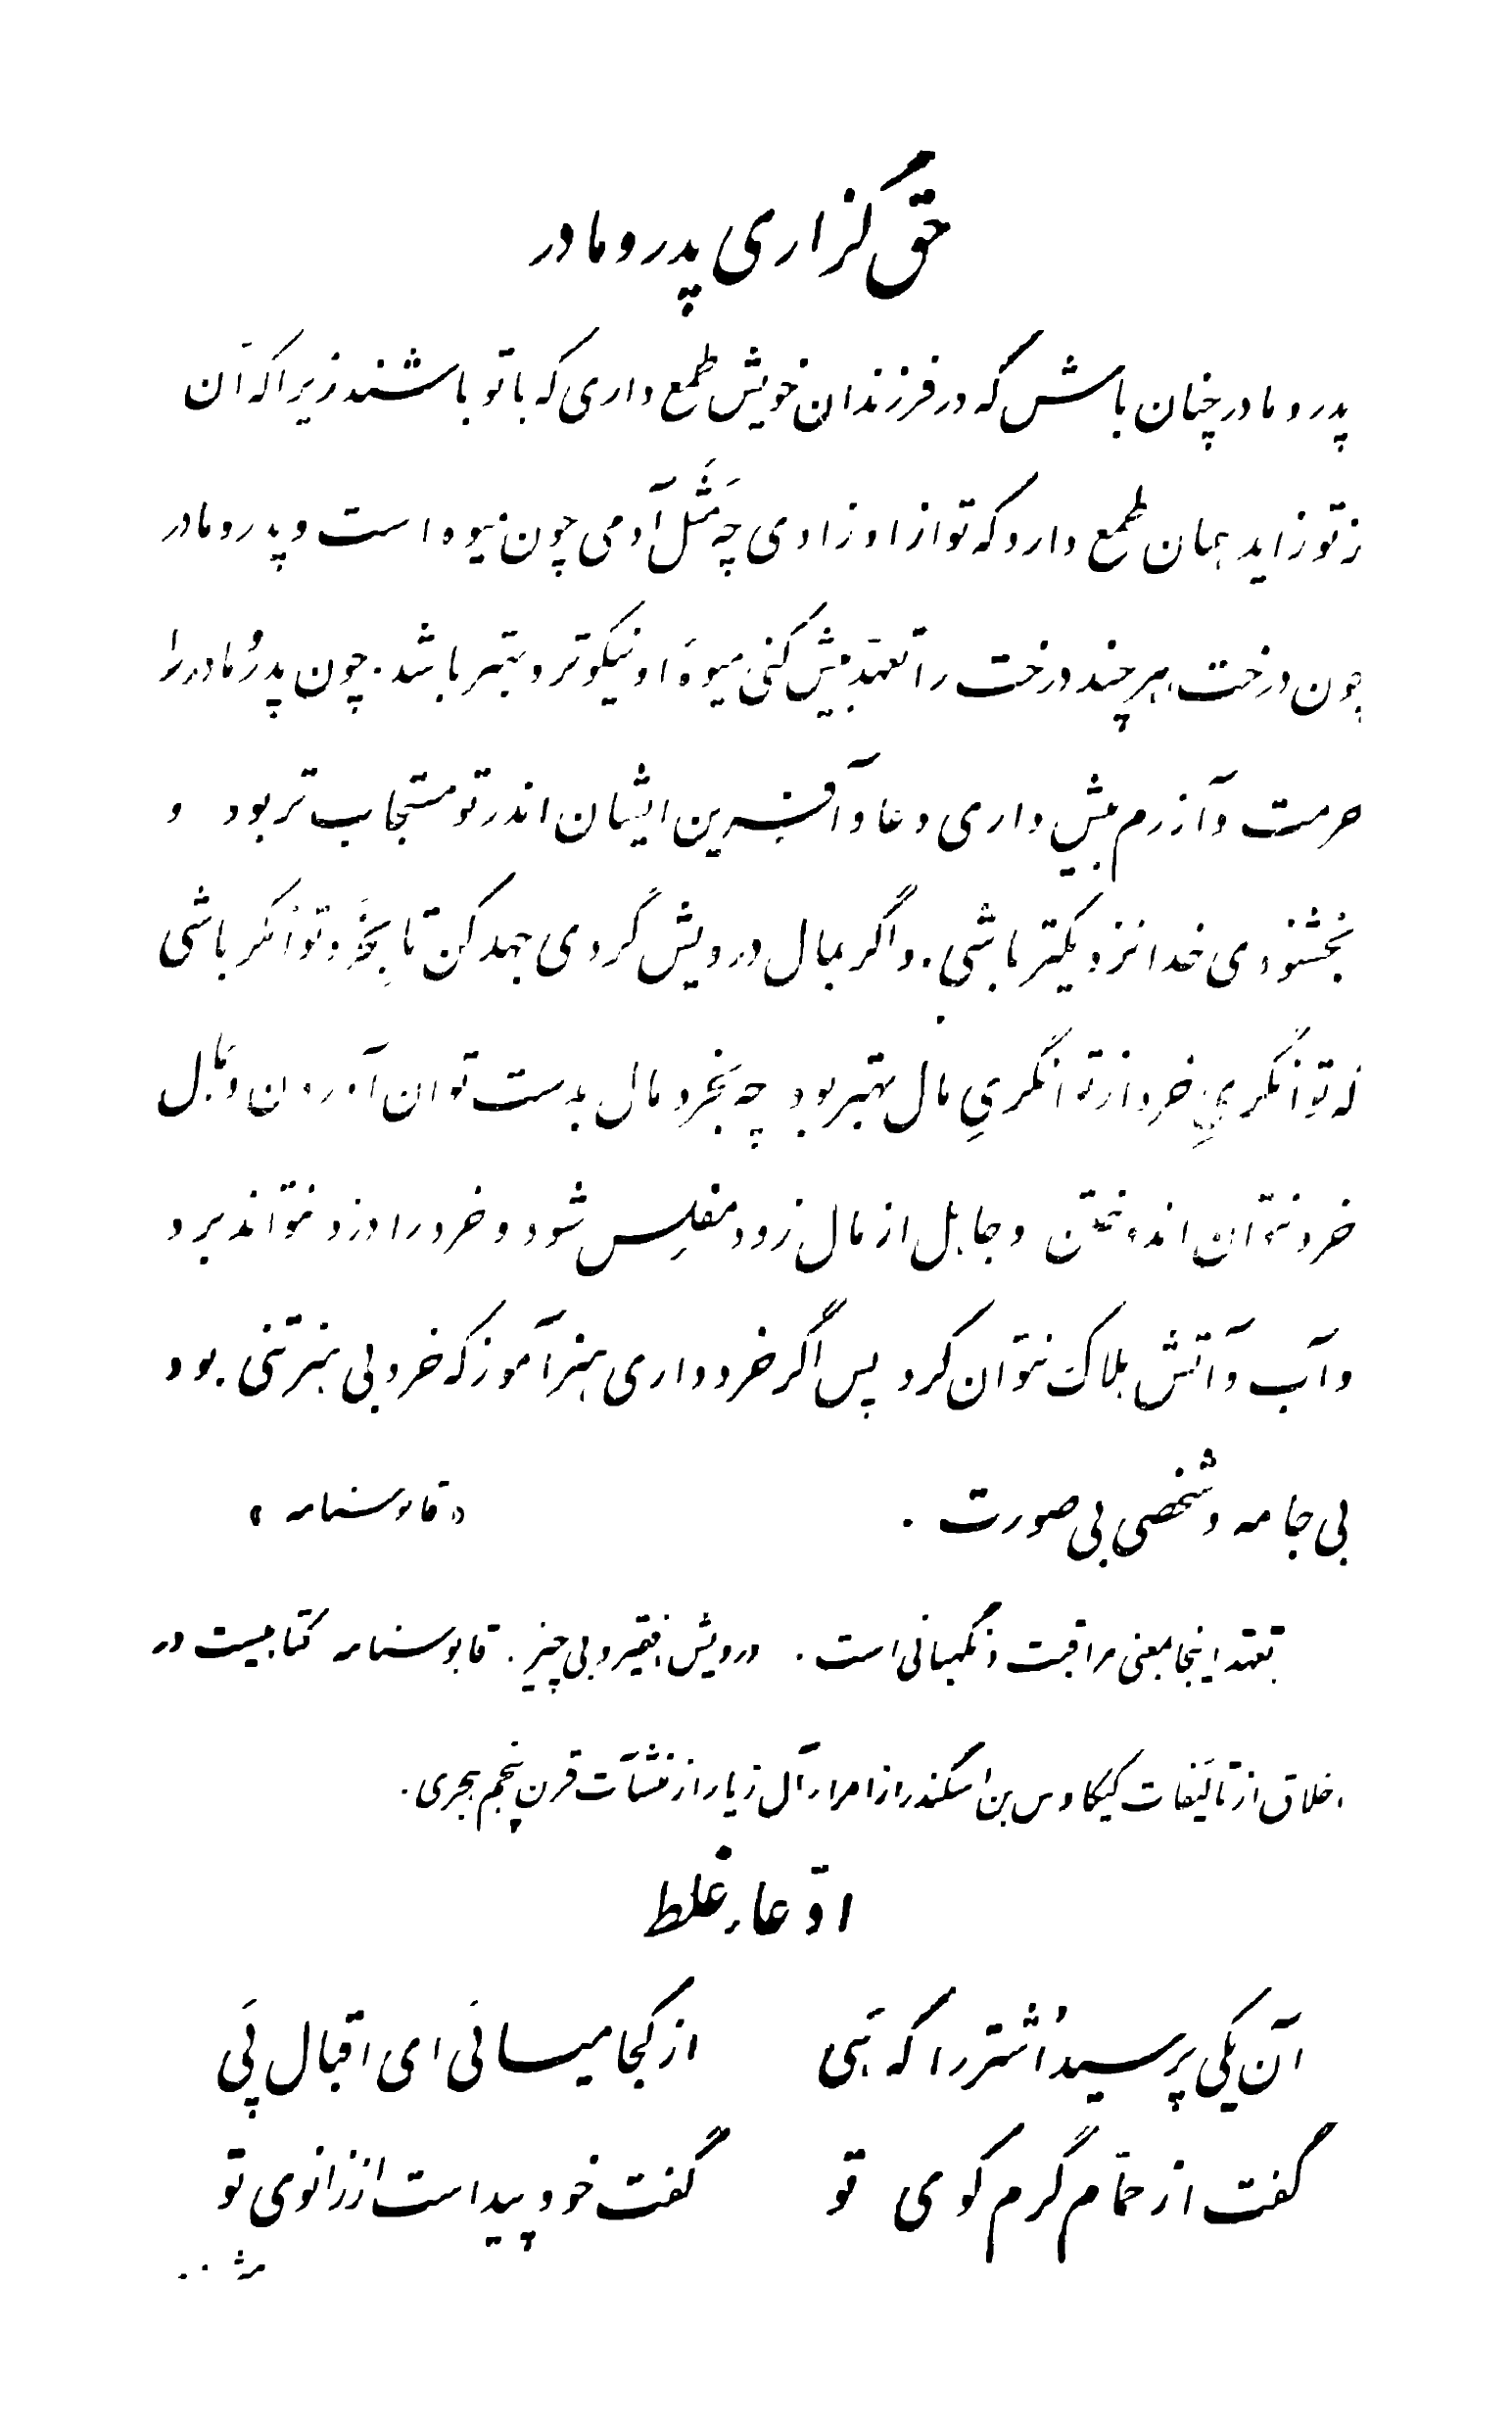 حق گزاری پدر و مادر
پدر و مادر چنان باش که در فرزندان خویش طمع داری که با تو باشند زیرا که آن
ز تو زاید همان طمع دارد که تو از او زادی چه مَثَل آدمی چون میوه است و پدر و مادر
چون درخت، هر چند درخت را تعهّد بیش کنی میوهٔ او نیکوتر و بهتر باشد. چون پدر و مادر را
حرمت و آزرم بیش داری دعا و آفرین ایشان اندر تو مستجاب تر بود و
بخشنودی خدا نزدیکتر باشی. و اگر بمال درویش گردی جهد کن تا بِخِرَد توانگر باشی
که توانگریِ خرد از توانگریِ مال بهتر بود چه بخرد مال بدست توان آوردن و بمال
خرد نتوان اندوختن و جاهل از مال زود مفلِس شود و خرد را دزد نتواند برد
و آب و آتش هلاک نتوان کرد پس اگر خرد داری هنر آموز که خرد بی هنر تنی بود
بی جامه و شخصی بی صورت . «قابوسنامه»
تعهّد اینجا بمعنی مراقبت و نگهبانی است . درویش، فقیر و بی چیز . قابوسنامه کتابیست در
اخلاق از تألیفات کیکاوس بن اسکندر از امراء آل زیار از منشآت قرن پنجم هجری .
ادّعاء غلط
آن یکی پرسید اُشتر را که هَی از کجا میائی ای اقبال پَی
گفت از حمّام گرم کوی تو گفت خود پیداست از زانوی تو